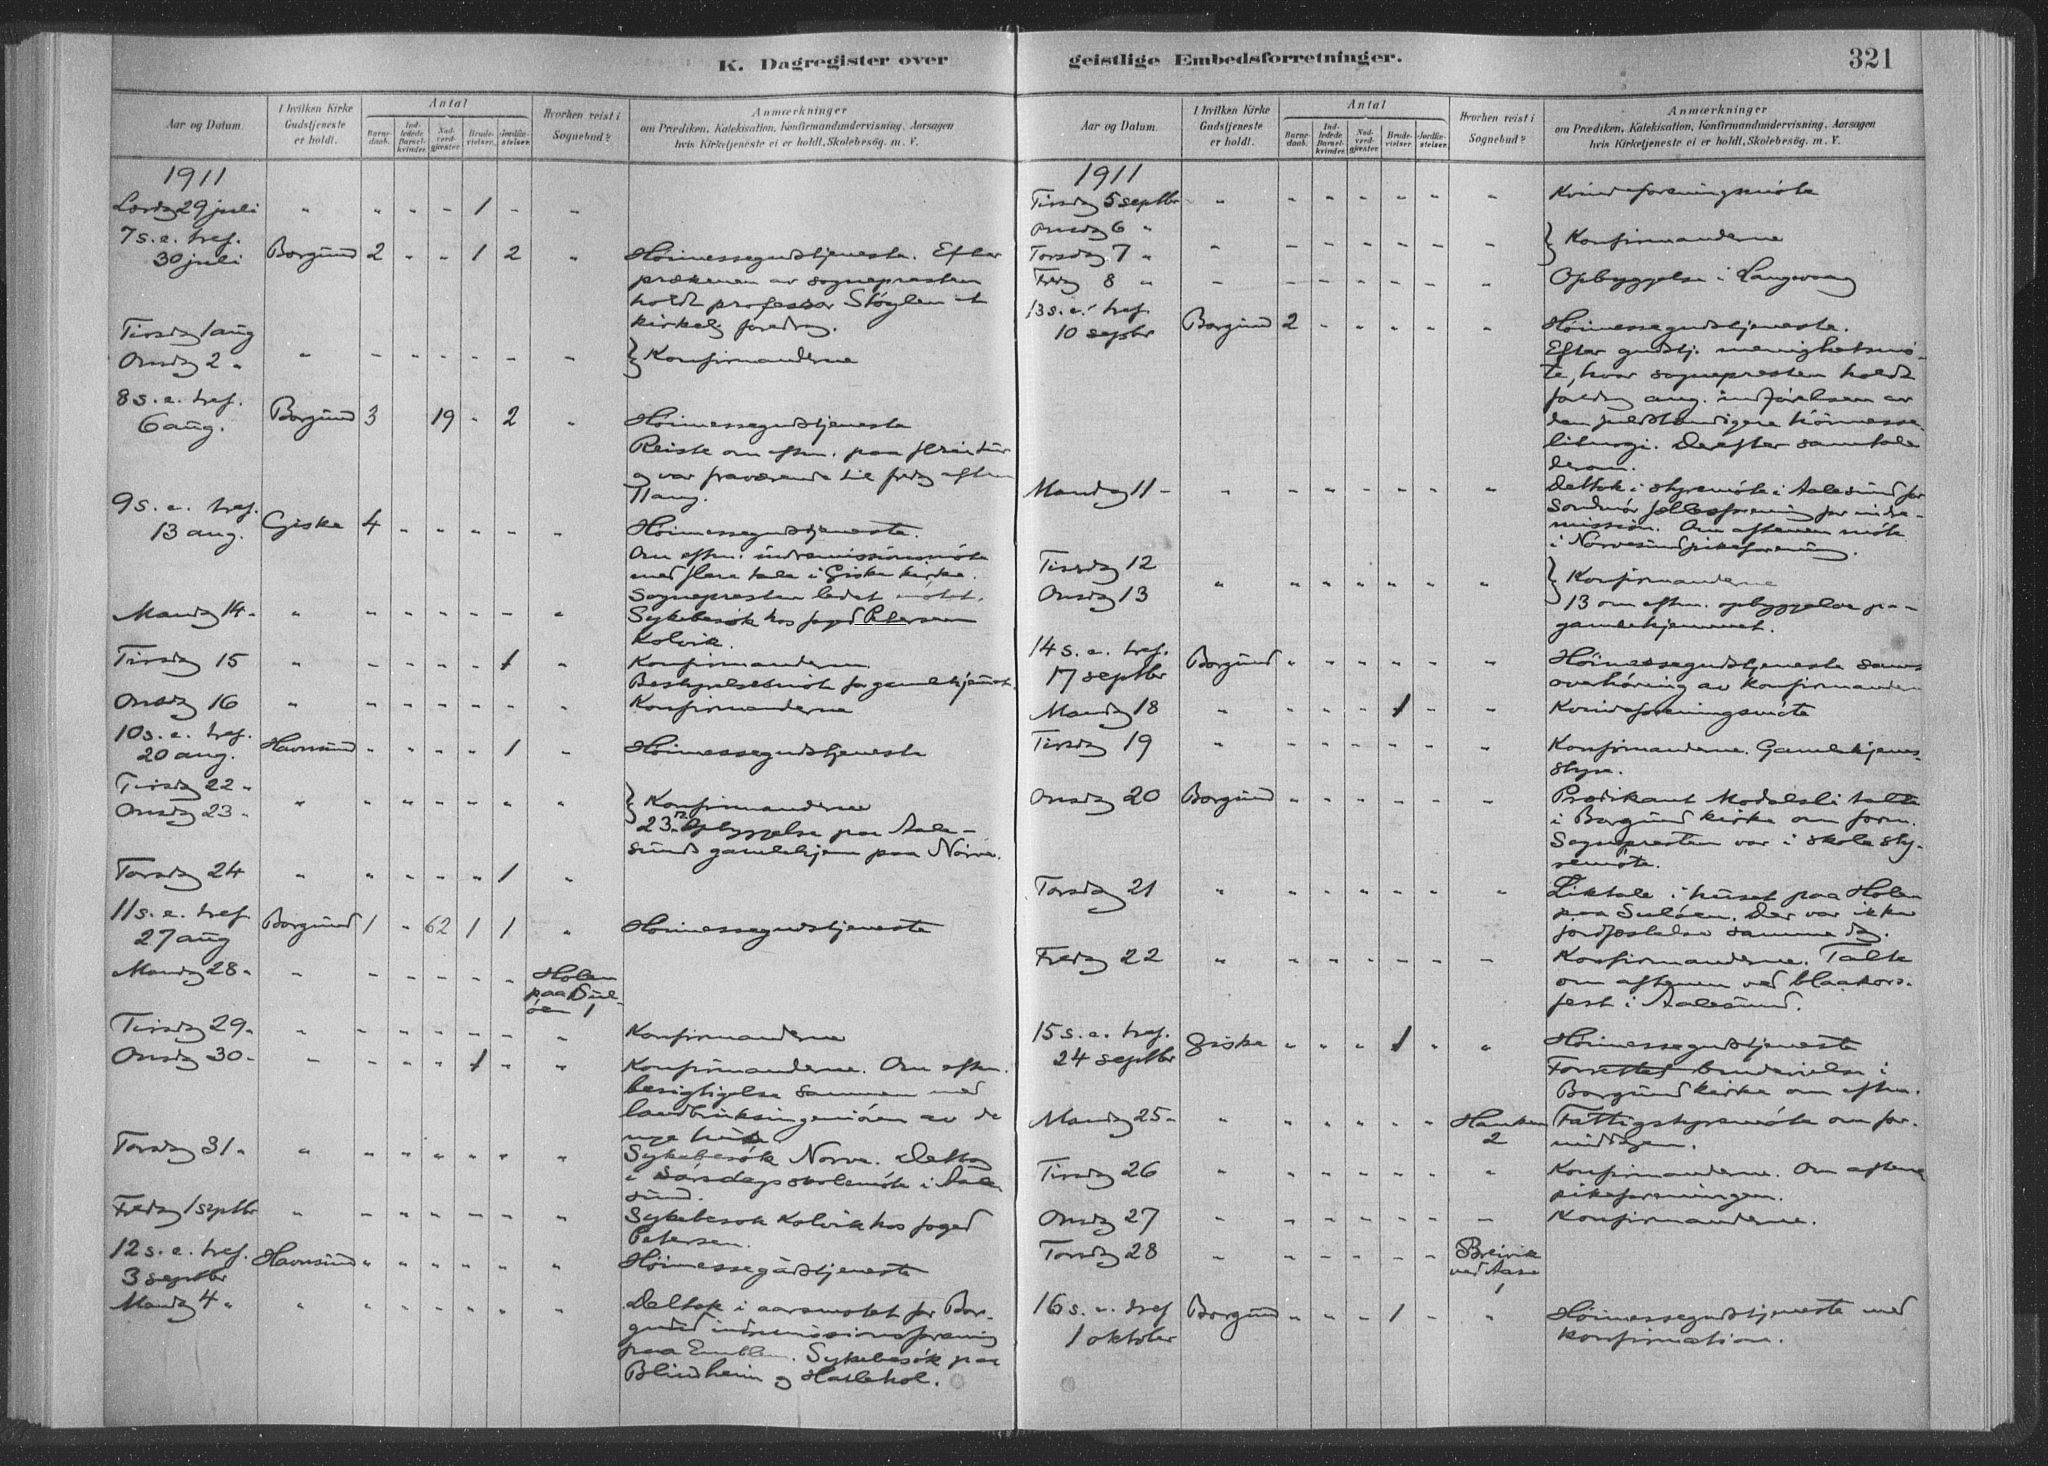 K. Dagregister over
Aar og Datum.
I hvilken Kirke Gudstjeneste er holdt.
Antal
Barnedaab.
Indledede Barselkvinder.
Nadverdgjester.
Brudevielser.
Jordfæstelser.
Hvorhen reist i Sognebud?
Anmærkninger
om Prædiken, Katekisation, Konfirmandundervisning, Aarsagen
hvis Kirketjeneste ei er holdt, Skolebesøg. m. V.
1911
Lørdag 29 juli " " - - 1 - "
7 s. e. tref.
30 juli Borgund 2 " " 1 2 " Høimessegudstjeneste. Efter
prækenen av sognepresten
holdt professor Støylen et
kirkelig foredrag.
Tirsdag 1 aug
Onsdag 2 " " - - - - - " } Konfirmanderne
8 s. e. tref.
6 aug. Borgund 3 19 - 2 " Høimessegudstjeneste
Reiste om eftm. paa
og var fraværende til fredag eftm
11 aug.
9 s. e. tref.
13 aug. Giske 4 - - - - " Høimessegudstjeneste.
Om eftm. indremissionsmøte
med flere tale i Giske kirke.
Sognepresten ledet møtet.
Mandag 14 " " - - - - - " Sykebesøk hos foged Petersen
Kolvik.
Tirsdag 15 " - - - - 1 " Konfirmanderne.
Bestyrelsesmøte for gamlehjemmet.
Onsdag 16 " " - - - - " Konfirmanderne
10 s. e. tref.
20 aug. Havnsund " - - - 1 " Høimessegudstjeneste
Tirsdag 22 "
Onsdag 23 " " " - - - " " } Konfirmanderne
23. Opbyggelse paa Aale-
sunds gamlehjem paa Nørve.
Torsdag 24 " " - - - 1 "
11 s. e. tref.
27 aug Borgund 1 " 62 1 1 " Høimessegudstjeneste
Mandag 28 " " - - - - - Holen
paa Sul-
øen 1
Tirsdag 29 " " - - - - - " Konfirmanderne
Onsdag 30 " " - - - 1 - " Konfirmanderne. Om eftm.
besigtigelse sammen med
landbruksingeniøren av de
nye
Torsdag 31 " " " " " " " " Sykebesøk Nørve. Deltog
i søndagsskolemøte i Aale
sund.
Fredag 1 septbr " - - - - - " Sykebesøk Kolvik hos foged
Petersen.
12 s. e. tref.
3 septbr Havnsund " " " " " " Høimessegudstjeneste
Mandag 4 " " " - - - - " Deltok i aarsmøtet for Bor-
gund indremissionsforening
paa Emblem. Sykebesøk paa
Blindheim og Hatlehol.
geistlige Embedsforretninger.
321
Aar og Datum.
I hvilken Kirke Gudstjeneste er holdt.
Antal
Barnedaab.
Indledede Barselkvinder.
Nadverdgjester.
Brudevielser.
Jordfæstelser.
Hvorhen reist i Sognebud?
Anmærkninger
om Prædiken, Katekisation, Konfirmandundervisning, Aarsagen
hvis Kirketjeneste ei er holdt, Skolebesøg. m. V.
1911
Tirsdag 5 septbr " - - - - - " Kvindeforeningsmøte
Onsdag 6 "
Torsdag 7 " " - - - - - " } Konfirmanderne
Fredag 8 " - - - - - - " Opbyggelse i Langevaag
13 s. e. tref.
10 septbr Borgund 2 - - - - " Høimessegudstjeneste.
Efter gudstj. menighetsmø-
te, hvor sognepresten holdt
foredrag ang. indførelsen av
den fuldstændigere høimesse-
liturgi. Derefter samtale
derom.
Mandag 11 - " - - - - - " Deltok i styremøte i Aalesund for
Søndmør fællesforening for indre-
mission. Om aftenen møte
i Nørvesund pikeforening.
Tirsdag 12
Onsdag 13 " " " - - - " } Konfirmanderne
13 om eftm. opbyggelse paa
gamlehjemmet.
14 s. e. tref.
17 septbr Borgund " - - - - " Høimessegudstjeneste samt
overhøring av konfirmanderne
Mandag 18 " - - - 1 - " Kvindeforeningsmøte
Tirsdag 19 " - - - - - " Konfirmanderne. Gamlehjems-
styre.
Onsdag 20 Borgund - - - - - " Prædikant Modalsli talte
i Borgund kirke om form.
Sognepresten var i skolesty-
remøte.
Torsdag 21 " " - - - - " Liktale i huset paa Holen
paa Suløen. Der var ikke
jordfæstelse samme dag.
Fredag 22 " - - - - - " Konfirmanderne. Talte
om aftenen ved blaakors-
fest i Aalesund.
15 s. e. tref.
24 septbr Giske " " " 1 " " Høimessegudstjeneste
Forrettet brudevielse i
Borgund kirke om eftm.
Mandag 25 " " - - - - - Hanken
2 Fattigstyremøte om for-
middagen.
Tirsdag 26 " - - - - - " Konfirmanderne. Om aftenen
pikeforeningen.
Onsdag 27 " - - - - - " Konfirmanderne.
Torsdag 28 " - - - - - Breivik
ved Aase
1
16 s. e. tref
1 oktober Borgund " - - 1 - " Høimessegudstjeneste med
konfirmation.